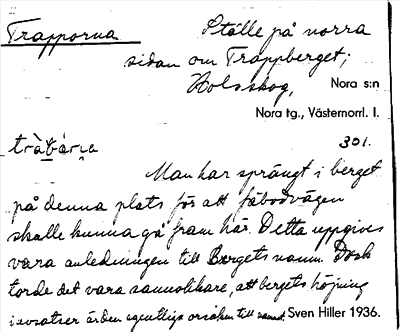 Trapporna
Ställe på norra
sidan om Trappberget;
Holsskog, Nora s:n
Nora tg., Västernorrl. l.
301.
Man har sprängt i berget
på denna plats för att fäbodvägen
skulle kunna gå fram här. Detta uppgives
vara anledningen till Bergets namn. Dock
torde det vara sannolikare, att bergets höjning
i avsatser är den egentliga orsaken till namnet. Sven Hiller 1936.